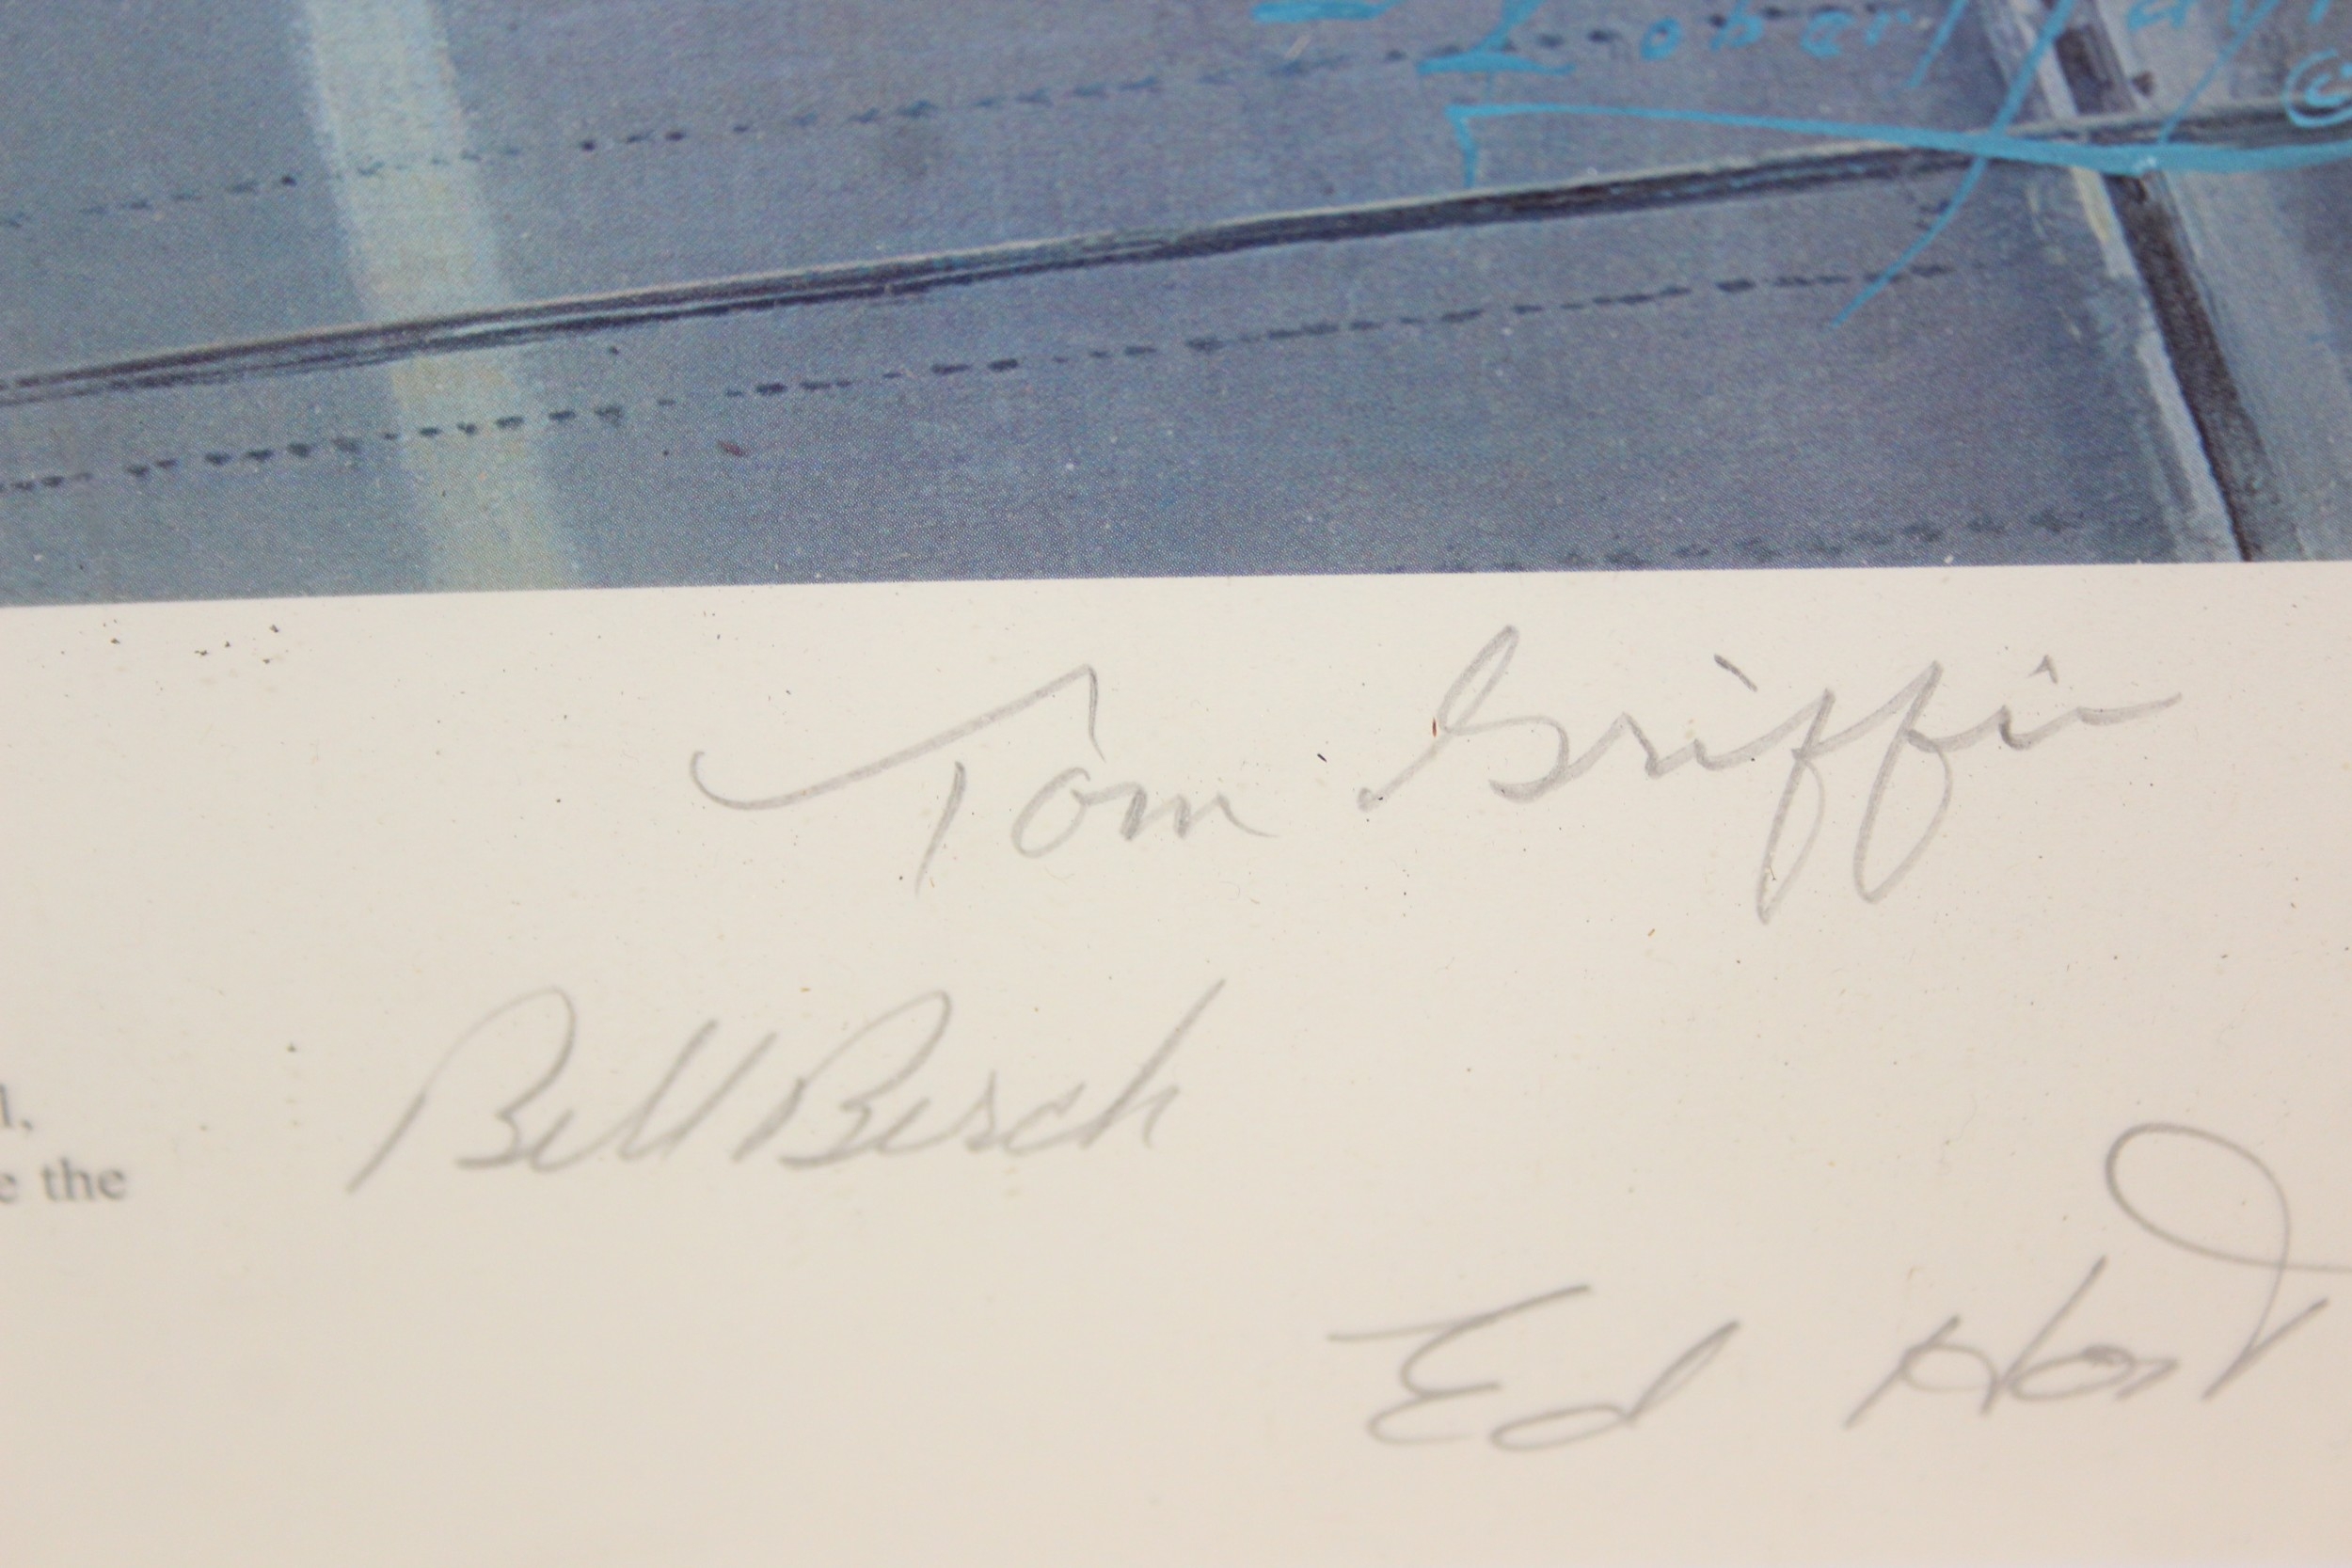 Robert Tayl
©
Tom Griffin
Bill Birch
l,
e the
Ed Hort